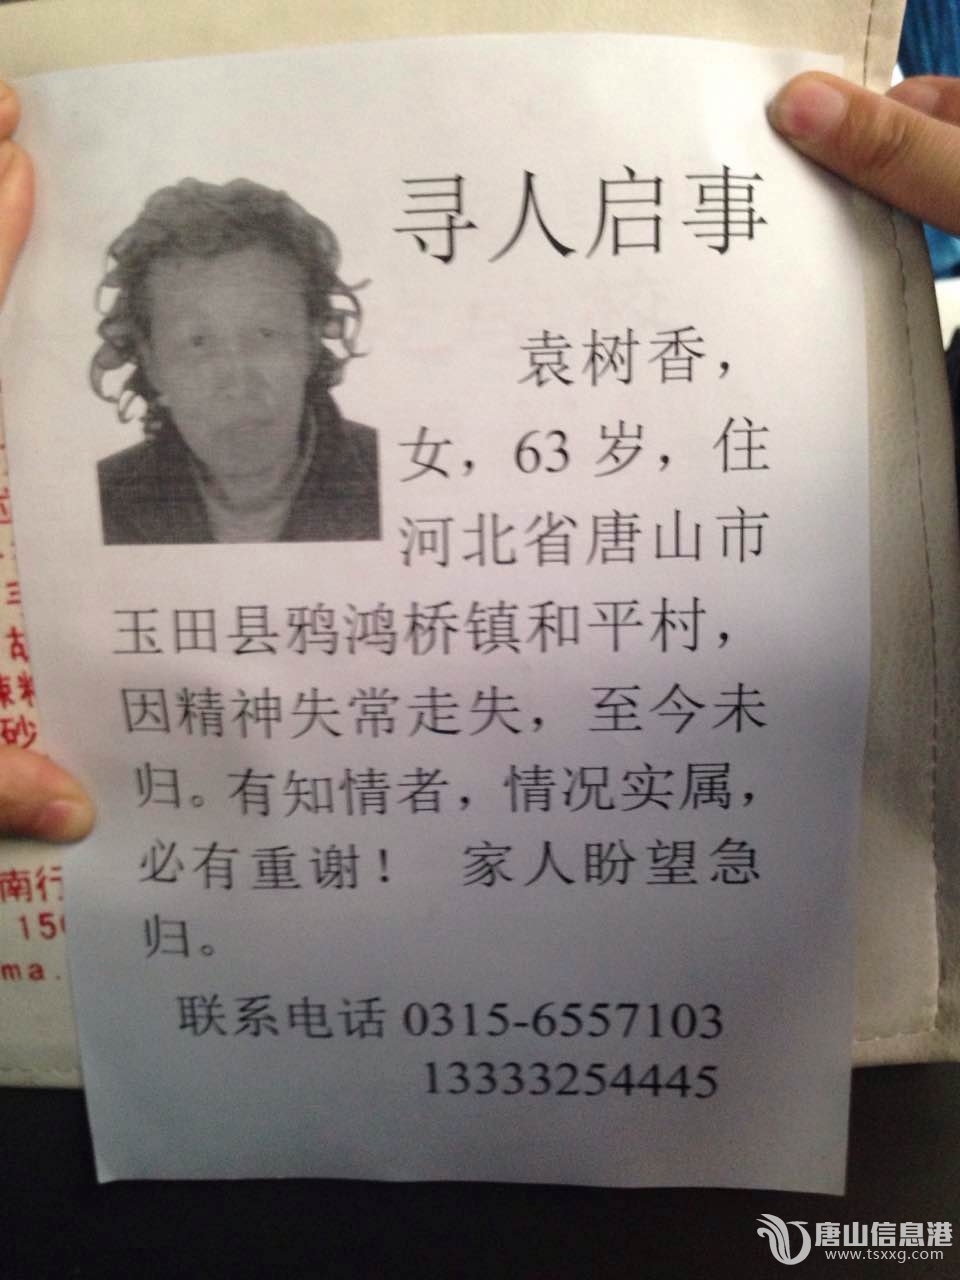 寻人启事
袁树香，
女，63 岁，住
河北省唐山市
玉田县鸦鸿桥镇和平村，
因精神失常走失，至今未
归。有知情者，情况实属，
必有重谢！ 家人盼望急
归。
联系电话 0315-6557103
13333254445
三
砂
南行
150
ma.
唐山信息港
www.tsxxg.com